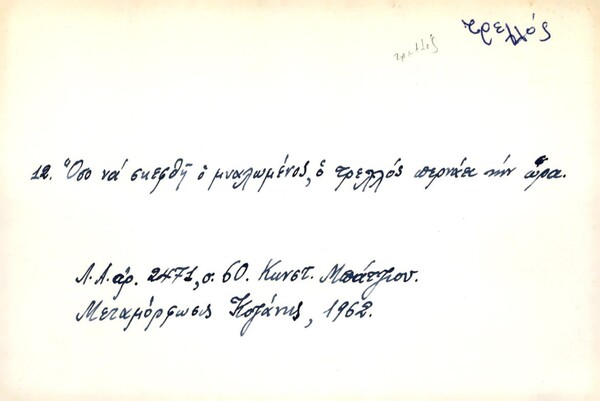 τρελλός
τρελλός
12. Ὅσο νά σκεφθῆ ὁ μυαλωμένος, ὁ τρελλός περνάει τήν ὥρα.
Λ.Α. ἀρ. 2471, σ. 60. Κωνστ. Μπάτζιου.
Μεταμόρφωσις Κοζάνης, 1962.